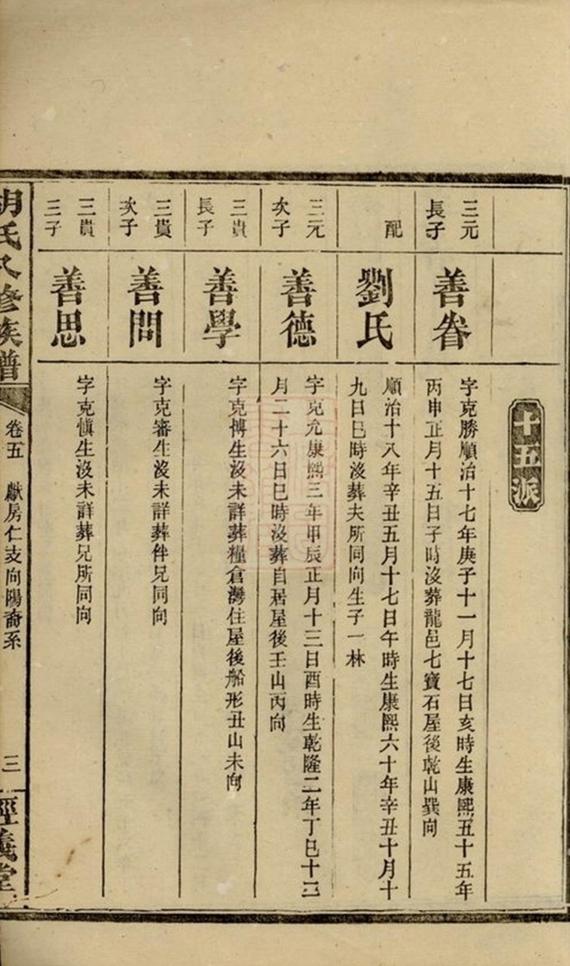 十五派
三元
長子
善眷
字克勝順治十七年庚子十一月十七日亥時生康熙五十五年
丙申正月十五日子時沒葬龍邑七寶石屋後乾山巽向
配
劉氏
順治十八年辛丑五月十七日午時生康熙六十年辛丑十月十
九日巳時沒葬夫所同向生子一林
三元
次子
善德
字克允康熙三年甲辰正月十三日酉時生乾隆二年丁巳十二
月二十六日巳時沒葬自居屋後壬山丙向
三貴
長子
善學
字克博生沒未詳葬糧倉灣住屋後船形丑山未向
三貴
次子
善問
字克審生沒未詳葬伴兄同向
三貴
三子
善思
字克慎生沒未詳葬兄所同向
胡氏八修族譜
卷五
獻房仁支向陽裔系
三
經義堂